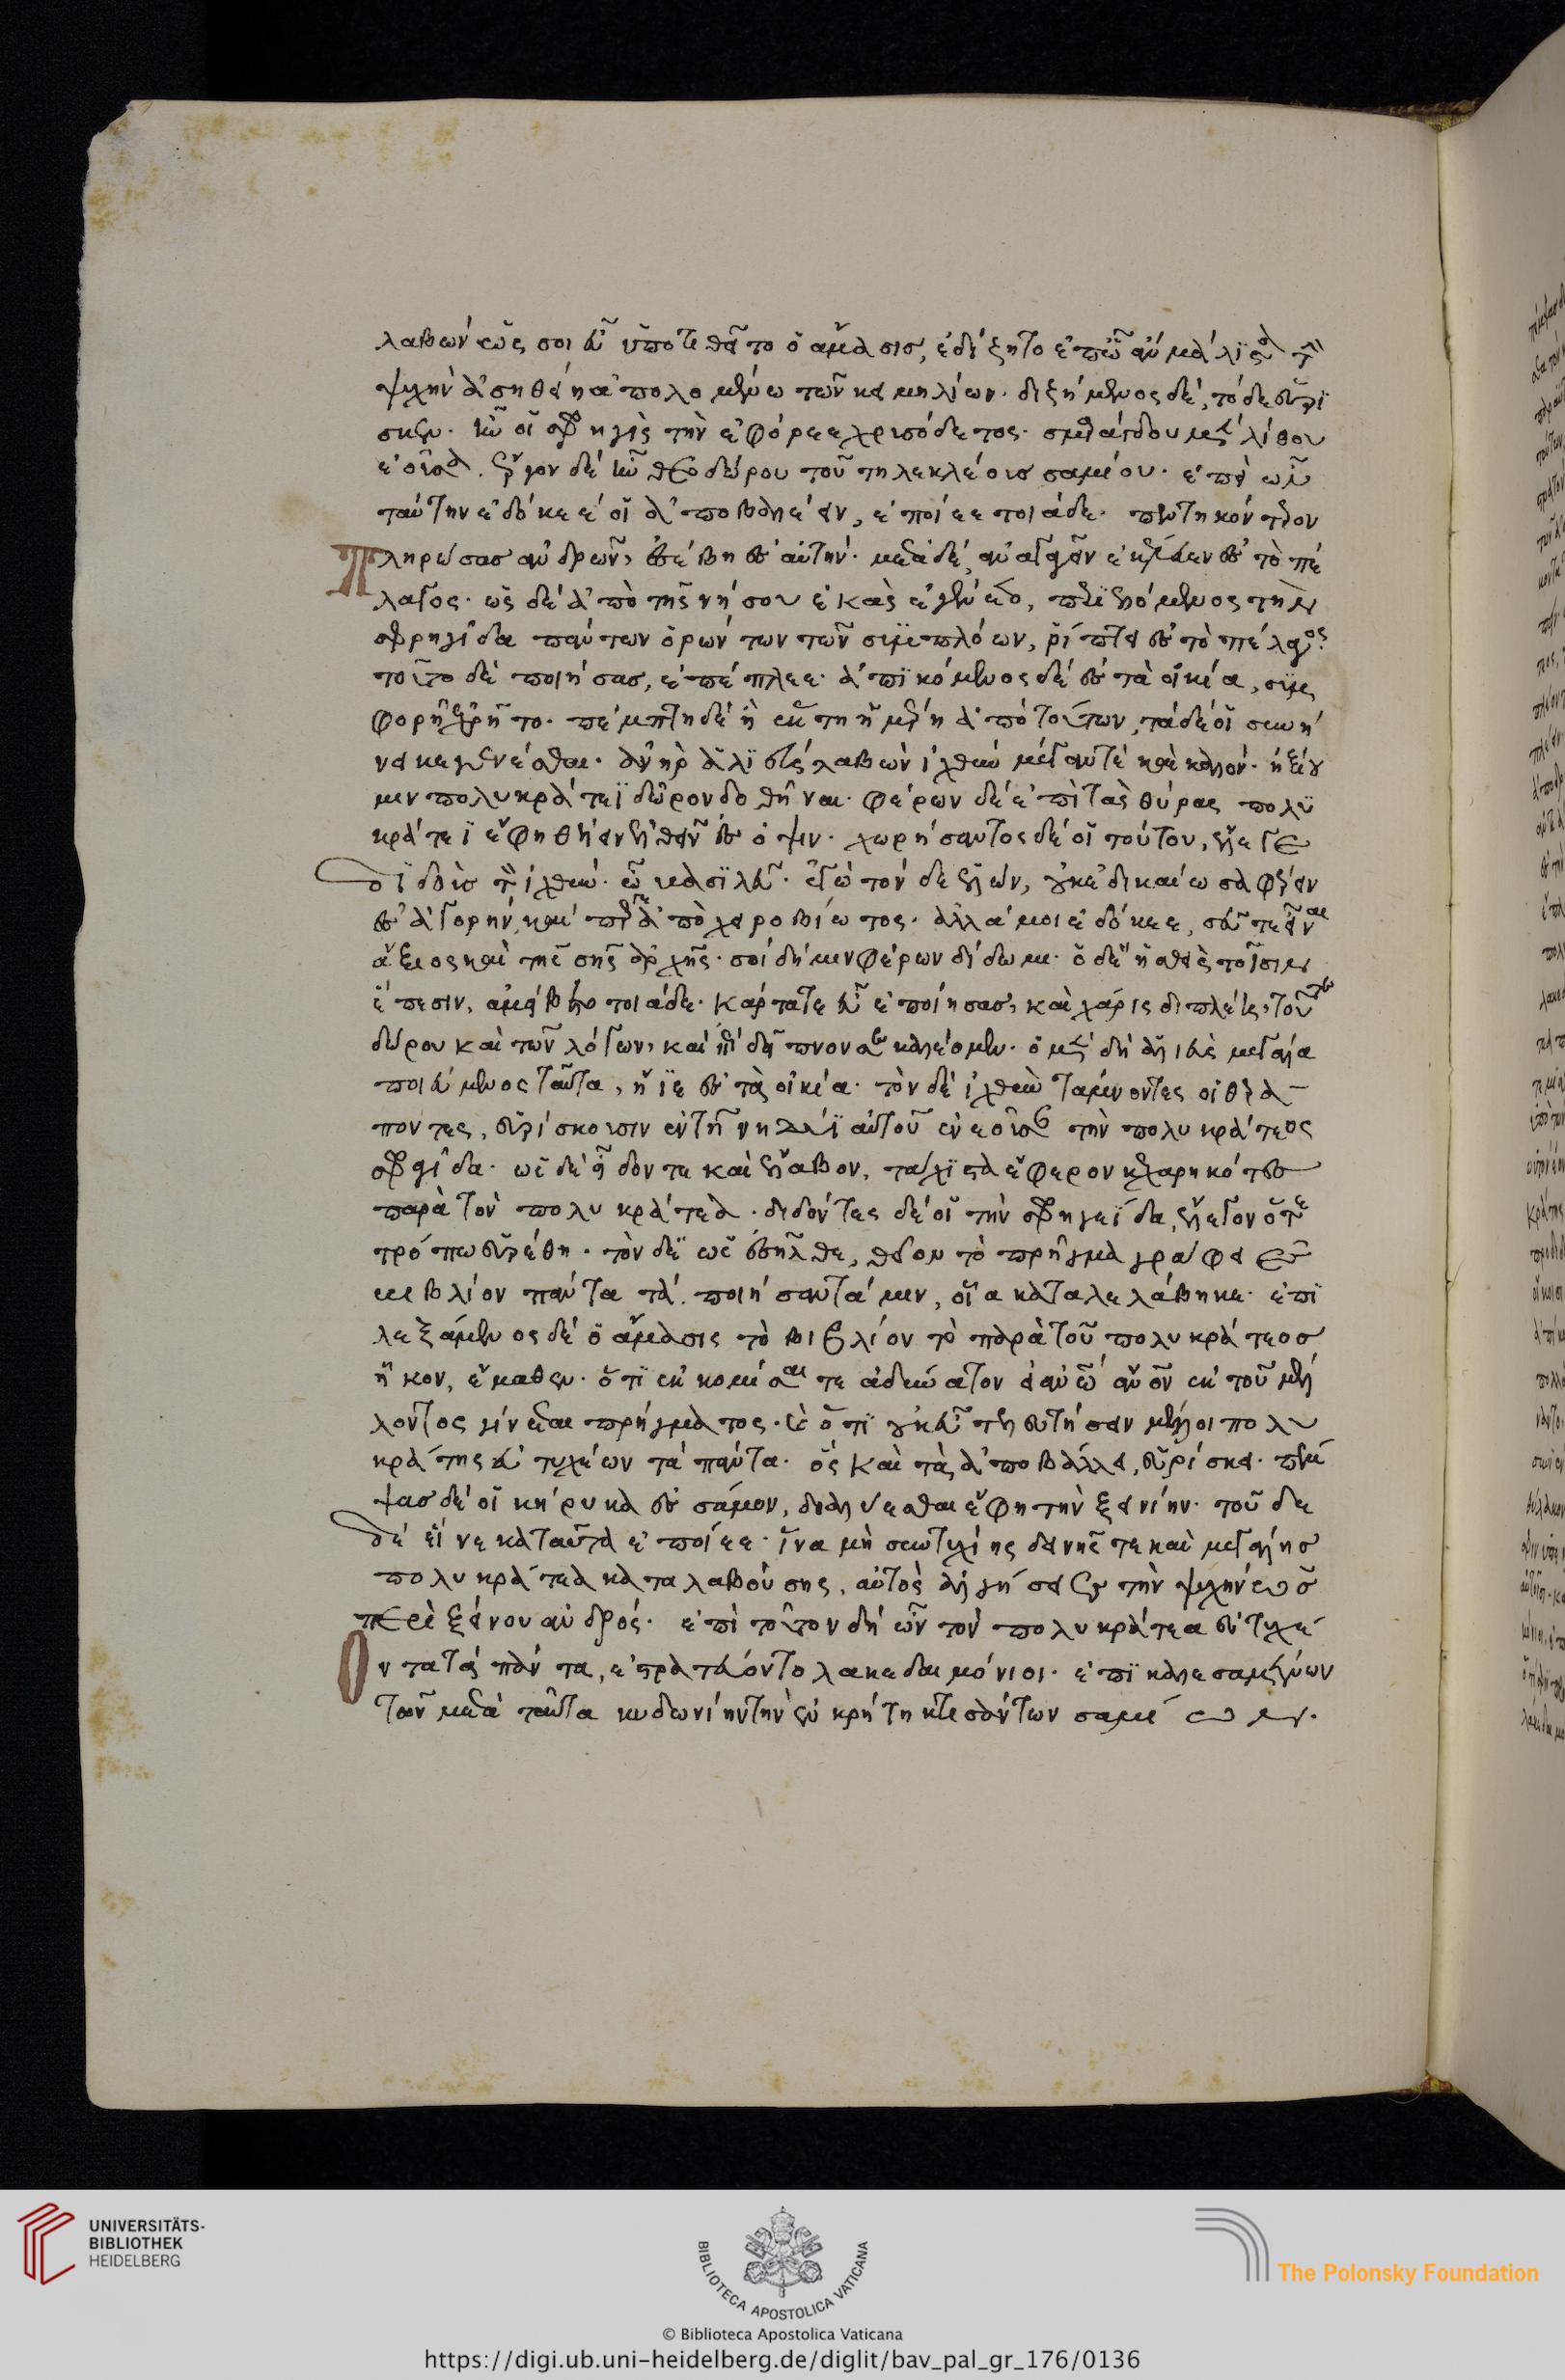 λαβών ὥς οι εὖ ὑποτεθεῖτο ὁ ἄμασισ, ἐδίζητο ἐπῶ ἂν μάλιστα τὴν
ψυχὴν ἀσηθείη ἀπολομένω τῶν κειμηλίων· διζήμενος δέ, τόδε εὕρι
σκεν· ἦν οἱ σφρηγὶς τὴν ἐφόρεε χρυσόδετος· σμαράγδου μὲν λίθου
ἐοῦσα. ἔργον δέ ἦν θεοδώρου τοῦ τηλεκλέουσ σαμίου· ἐπεὶ ὦν
ταύτην ἐδόκεέ οἱ ἀποβαλέειν, ἐποίεε τοιάδε· πεντηκόντερον
πληρώσασ ἀνδρῶν, ἐσέβη ἐσ αὐτήν· μετὰ δέ, ἀναγαγεῖν ἐκέλευεν ἐσ τὸ πέ
λαγος· ὡς δέ ἀπὸ τῆς νήσου ἑκὰς ἐγένετο, περιελόμενος τὴν
σφρηγῖδα πάντων ὁρώντων τῶν συμπλόων, ῥίπτει ἐσ τὸ πέλαγος·
τοῦτο δὲ ποιήσασ, ἐπέπλεε· ἀπικόμενος δέ ἐσ τὰ οἰκία, συμ
φορῆ ἐχρῆτο· πέμπτη δέ ἢ ἕκτη ἡμέρη ἀπὸ τούτων, τάδέ οἱ συνή
νεικε γενέσθαι· ἀνὴρ ἁλιεύς λαβὼν ἰχθύν μέγαν τέ καὶ καλόν· ἠξίου
μιν πολυκράτεϊ δῶρον δοθῆναι· φέρων δέ ἐπὶ τὰς θύρας πολυ
κράτεϊ ἔφη ἐθέλειν ἐλθεῖν ἐσ ὄψιν· χωρήσαντος δέ οἱ τούτου, ἔλεγε
διδοὺσ τὸν ἰχθύν· ὦ βασιλεῦ· ἐγὼ τόν δε ἑλών, οὐκ ἐδικαίωσα φέρειν
ἐσ ἀγορήν, καί περ ἀπὸ χειροβιώτος· ἀλλά μοι ἐδόκεε, σεῦ τε εἶναι
ἄξιος καὶ τῆς σῆς ἀρχῆς· σοί δή μιν φέρων δίδωμι· ὁ δὲ ἡσθεὶς τοῖσιν
ἔπεσιν, ἀμείβετο τοιάδε· κάρτα τε εὖ ἐποίησασ, καὶ χάρις διπλέη, τοῦ τε
δώρου καὶ τῶν λόγων, καί ἐπὶ δεῖπνον σε καλέομεν· ὁ μὲν δή ἁλιεὺς μεγάλα
ποιεύμενος ταῦτα, ἤϊε ἐσ τὰ οἰκία· τὸν δέ ἰχθὺν ταμνοντες οἱ θερά
ποντες, εὑρίσκουσιν ἐν τῆ νηδύϊ αὐτοῦ ἐνεοῦσαν τὴν πολυκράτεος
σφρηγῖδα· ὡς δέ εἶδόν τε καὶ ἔλαβον, τάχιστα ἔφερον κεχαρηκότεσ
παρὰ τὸν πολυκράτεα· διδόντες δέ οἱ τὴν σφρηγεῖδα, ἔλεγον ὅτεω
τρόπω εὑρέθη· τὸν δὲ ὡς ἐσῆλθε, θεῖον τὸ πρῆγμα γράφει ἐς
βιβλίον πάντα τά ποιήσαντά μιν, οἷα καταλελάβηκε· ἐπι
λεξάμενος δέ ὁ ἄμασις τὸ βιβλίον τὸ παρὰ τοῦ πολυκράτεοσ
ἧκον, ἔμαθεν· ὅτι ἐκκομίσαι τε ἀδύνατον εἴη ἀνθρώπω ἄνθρωπον ἐκ τοῦ μέλ
λοντος γίνεσθαι πρήγματος· καὶ ὅτι οὐκ εὖ τελευτήσειν μέλλοι πολυ
κράτης εὐτυχέων τά πάντα· ὅς καὶ τὰ ἀποβάλλει, εὑρίσκει· πέμ
ψασ δέ οἱ κήρυκα ἐσ σάμον, διαλύεσθαι ἔφη τὴν ξεινίην· τοῦ δε
δέ εἵνεκα ταῦτα ἐποίεε· ἵνα μὴ συντυχίης δεινῆς τε καὶ μεγάλησ
πολυκράτεα καταλαβούσης, αὐτὸς ἀλγήσειεν τὴν ψυχήν ὡς
περὶ ξείνου ἀνδρός· ἐπὶ τοῦτον δή ὦν τὸν πολυκράτεα εὐτυχέ
οντα τά πάντα, ἐστρατεύοντο λακεδαιμόνιοι· ἐπικαλεσαμένων
τῶν μετὰ ταῦτα κυδωνίην τὴν ἐν κρήτη κτισάντων σαμίων·
UNIVERSITÄTS-
BIBLIOTHEK
HEIDELBERG
BIBLIOTECA APOSTOLICA VATICANA
The Polonsky Foundation
© Biblioteca Apostolica Vaticana
https://digi.ub.uni-heidelberg.de/diglit/bav_pal_gr_176/0136